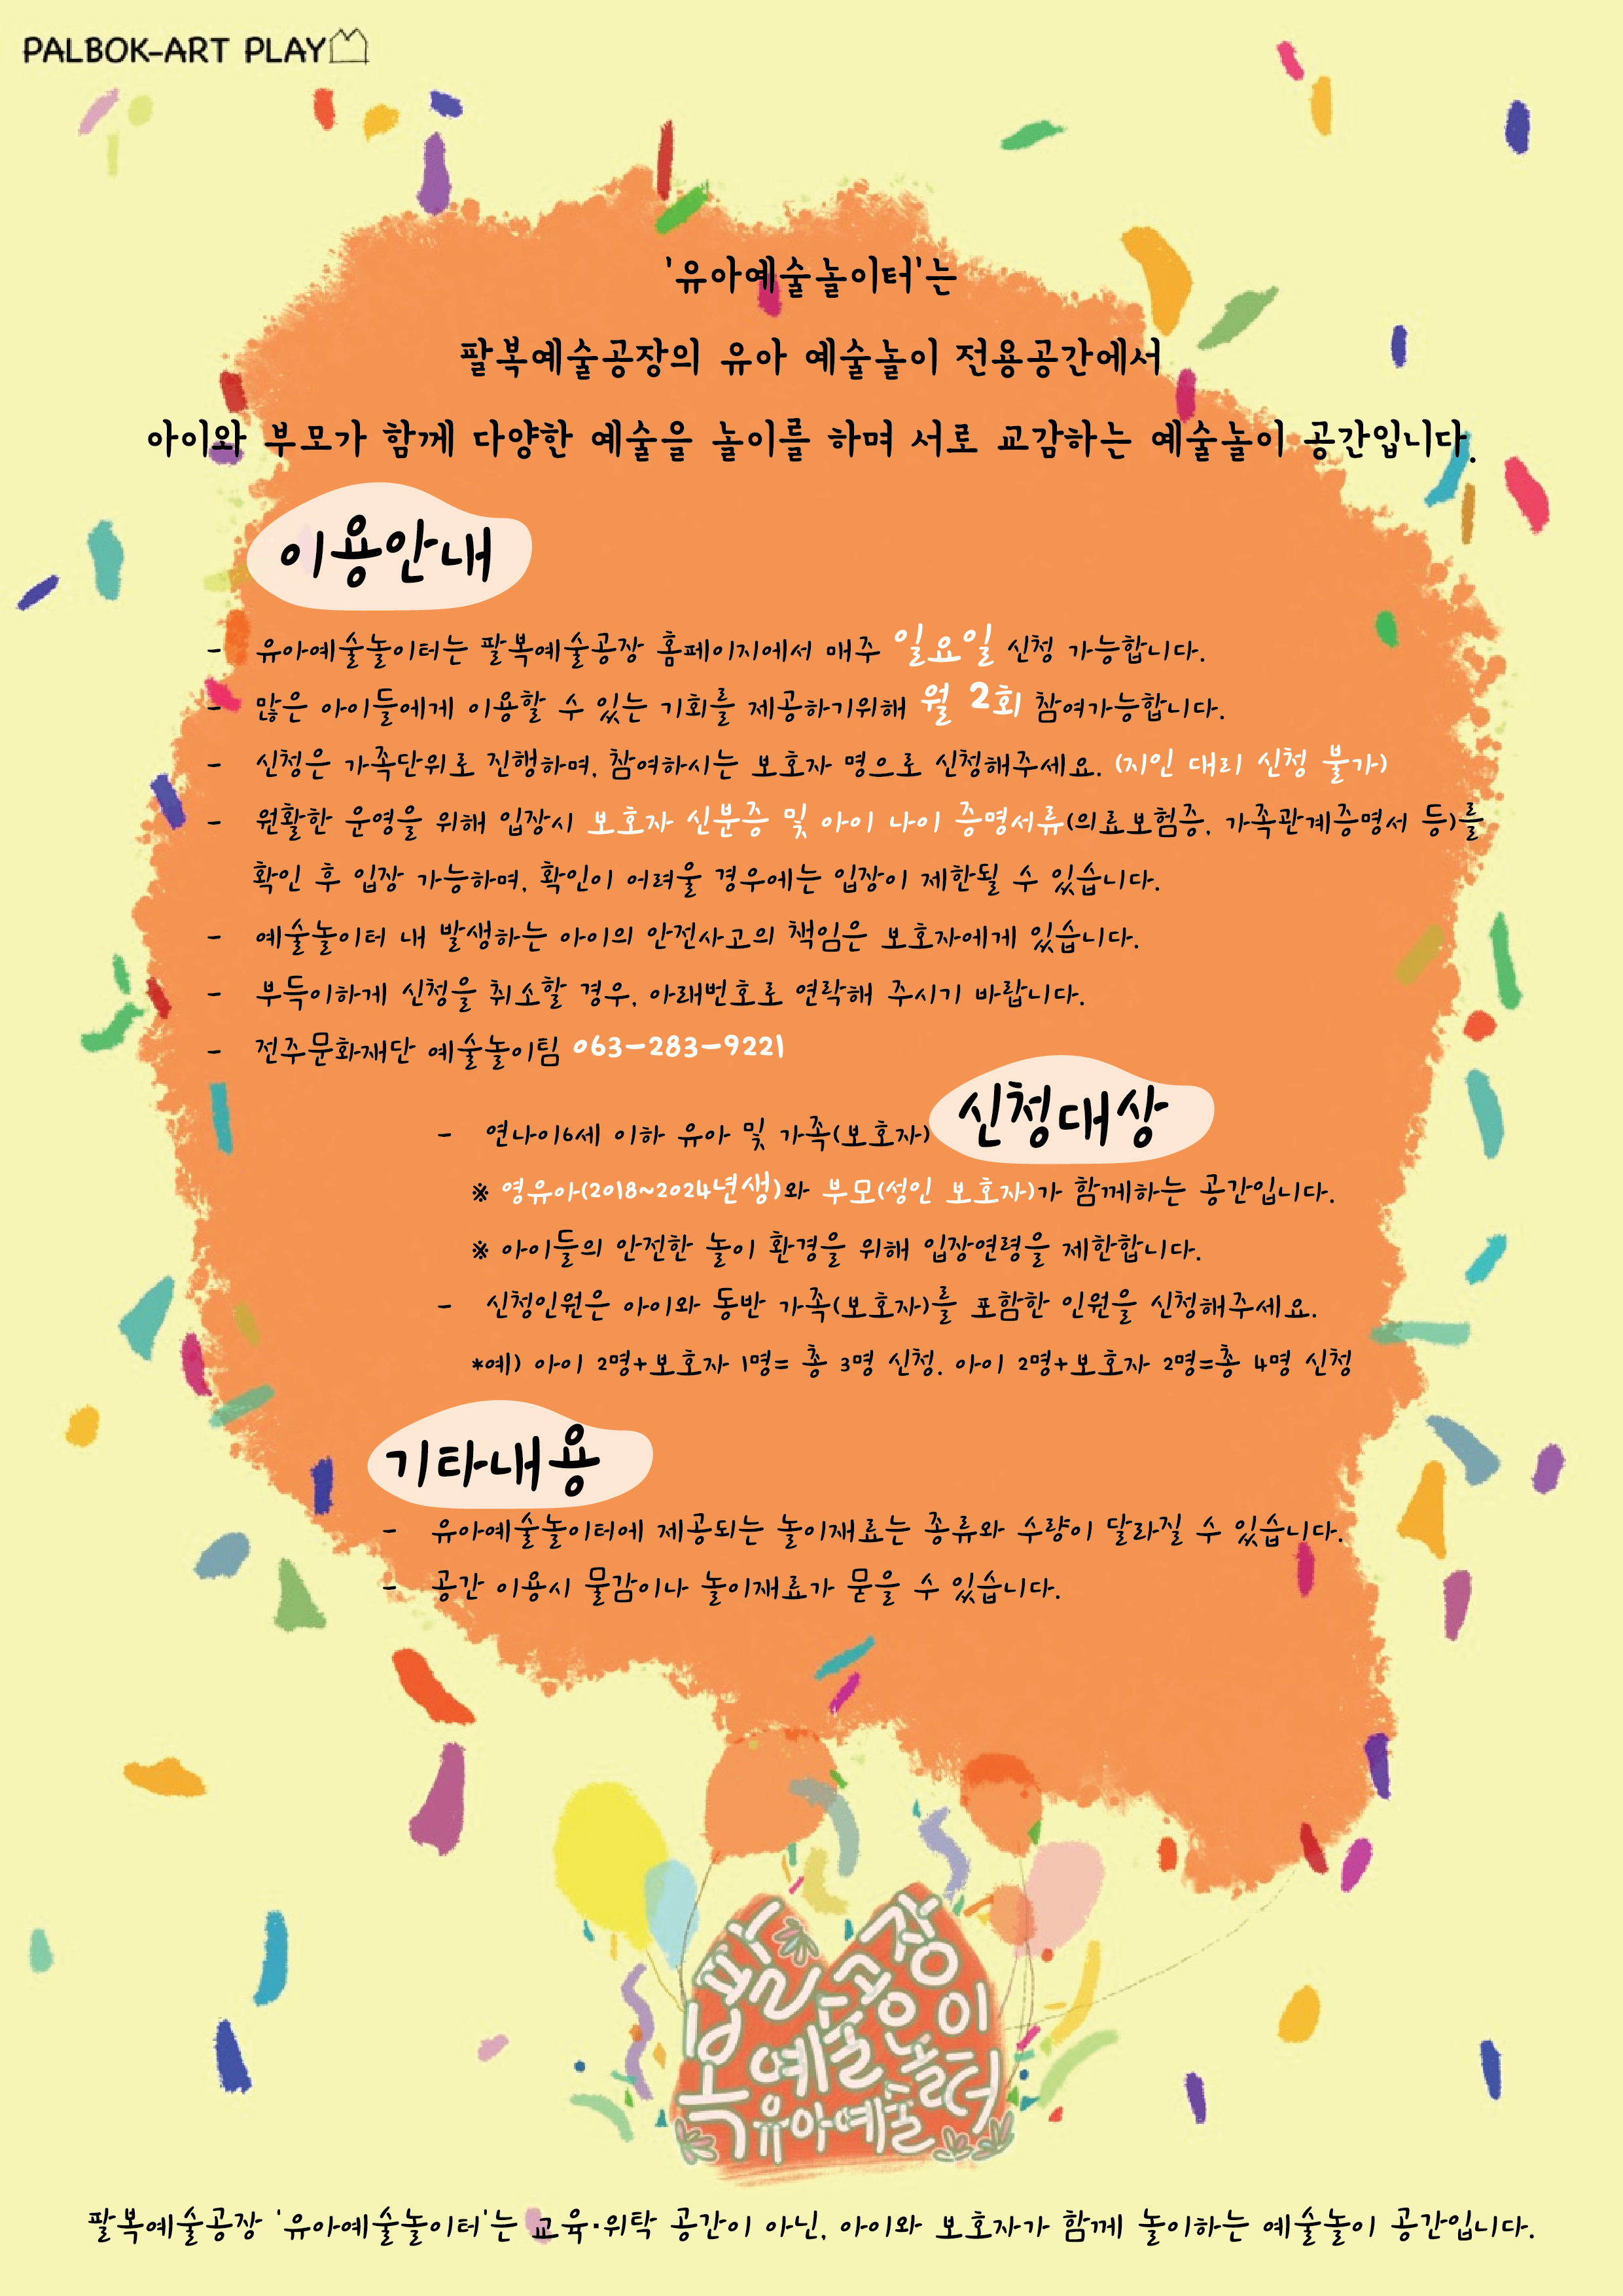 PALBOK-ART PLAY
'유아예술놀이터'는
팔복예술공장의 유아 예술놀이 전용공간에서
아이와 부모가 함께 다양한 예술을 놀이를 하며 서로 교감하는 예술놀이 공간입니다.
이용안내
- 유아예술놀이터는 팔복예술공장 홈페이지에서 매주 일요일 신청 가능합니다.
- 많은 아이들에게 이용할 수 있는 기회를 제공하기위해 월 2회 참여가능합니다.
- 신청은 가족단위로 진행하며, 참여하시는 보호자 명으로 신청해주세요. (지인 대리 신청 불가)
- 원활한 운영을 위해 입장시 보호자 신분증 및 아이 나이 증명서류(의료보험증, 가족관계증명서 등)를
확인 후 입장 가능하며, 확인이 어려울 경우에는 입장이 제한될 수 있습니다.
- 예술놀이터 내 발생하는 아이의 안전사고의 책임은 보호자에게 있습니다.
- 부득이하게 신청을 취소할 경우, 아래번호로 연락해 주시기 바랍니다.
- 전주문화재단 예술놀이팀 063-283-9221
신청대상
- 연나이6세 이하 유아 및 가족(보호자)
※ 영유아(2018~2024년생)와 부모(성인 보호자)가 함께하는 공간입니다.
※ 아이들의 안전한 놀이 환경을 위해 입장연령을 제한합니다.
- 신청인원은 아이와 동반 가족(보호자)를 포함한 인원을 신청해주세요.
*예) 아이 2명+보호자 1명= 총 3명 신청. 아이 2명+보호자 2명=총 4명 신청
기타내용
- 유아예술놀이터에 제공되는 놀이재료는 종류와 수량이 달라질 수 있습니다.
- 공간 이용시 물감이나 놀이재료가 묻을 수 있습니다.
팔복예술공장
유아예술놀이터
팔복예술공장 '유아예술놀이터'는 교육·위탁 공간이 아닌, 아이와 보호자가 함께 놀이하는 예술놀이 공간입니다.